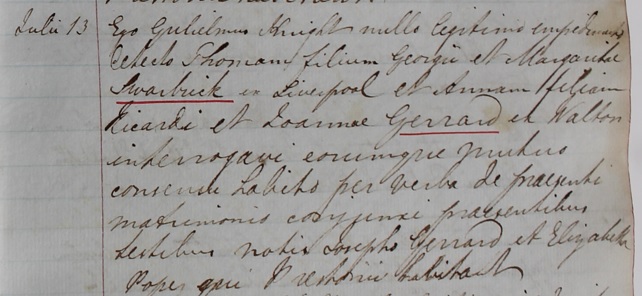 Julii 13 Ego Gulielmus Knight nullo legitimo impedimento
detecto Thomam filium Georgii et Margaritae
Swarbrick ex Liverpool et Annam filiam
Ricardi et Joannae Gerrard ex Walton
interrogavi eorumque mutuo
consensu habito per verba de praesenti
matrimonio conjunxi praesentibus
testibus notis Josepho Gerrard et Elizabetha
Pope qui Prestonii habitant